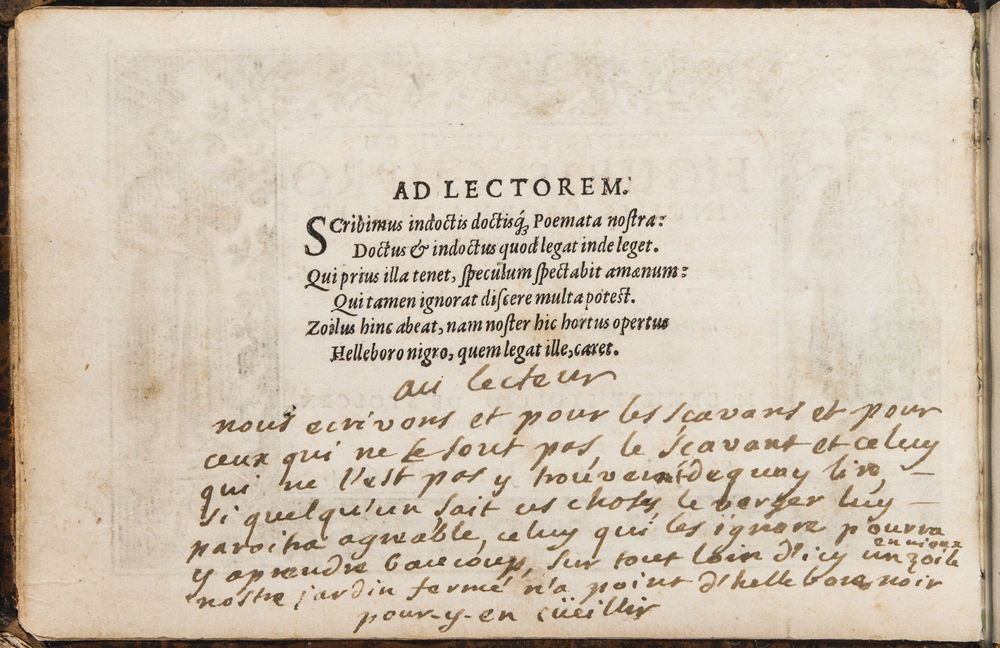 AD LECTOREM.
SCribimus indoctis doctisq́; Poemata nostra:
Doctus & indoctus quod legat inde leget.
Qui prius illa tenet, speculum spectabit amœnum:
Qui tamen ignorat discere multa potest.
Zoilus hinc abeat, nam noster hic hortus opertus
Helleboro nigro, quem legat ille, caret.
au lecteur
nous ecrivons et pour les scavans et pour
ceux qui ne le sont pas, le scavant et celuy
qui ne l'est pas y trouveront dequoy lire,
si quelqu'un sait ces choses, le verger luy
paroitra agreable, celuy qui les ignore pourra
y aprendre baucoup, sur tout loin d'icy un zoile
envieux
nostre jardin fermé n'a point d'hellebore noir
pour-y-en cüeillir